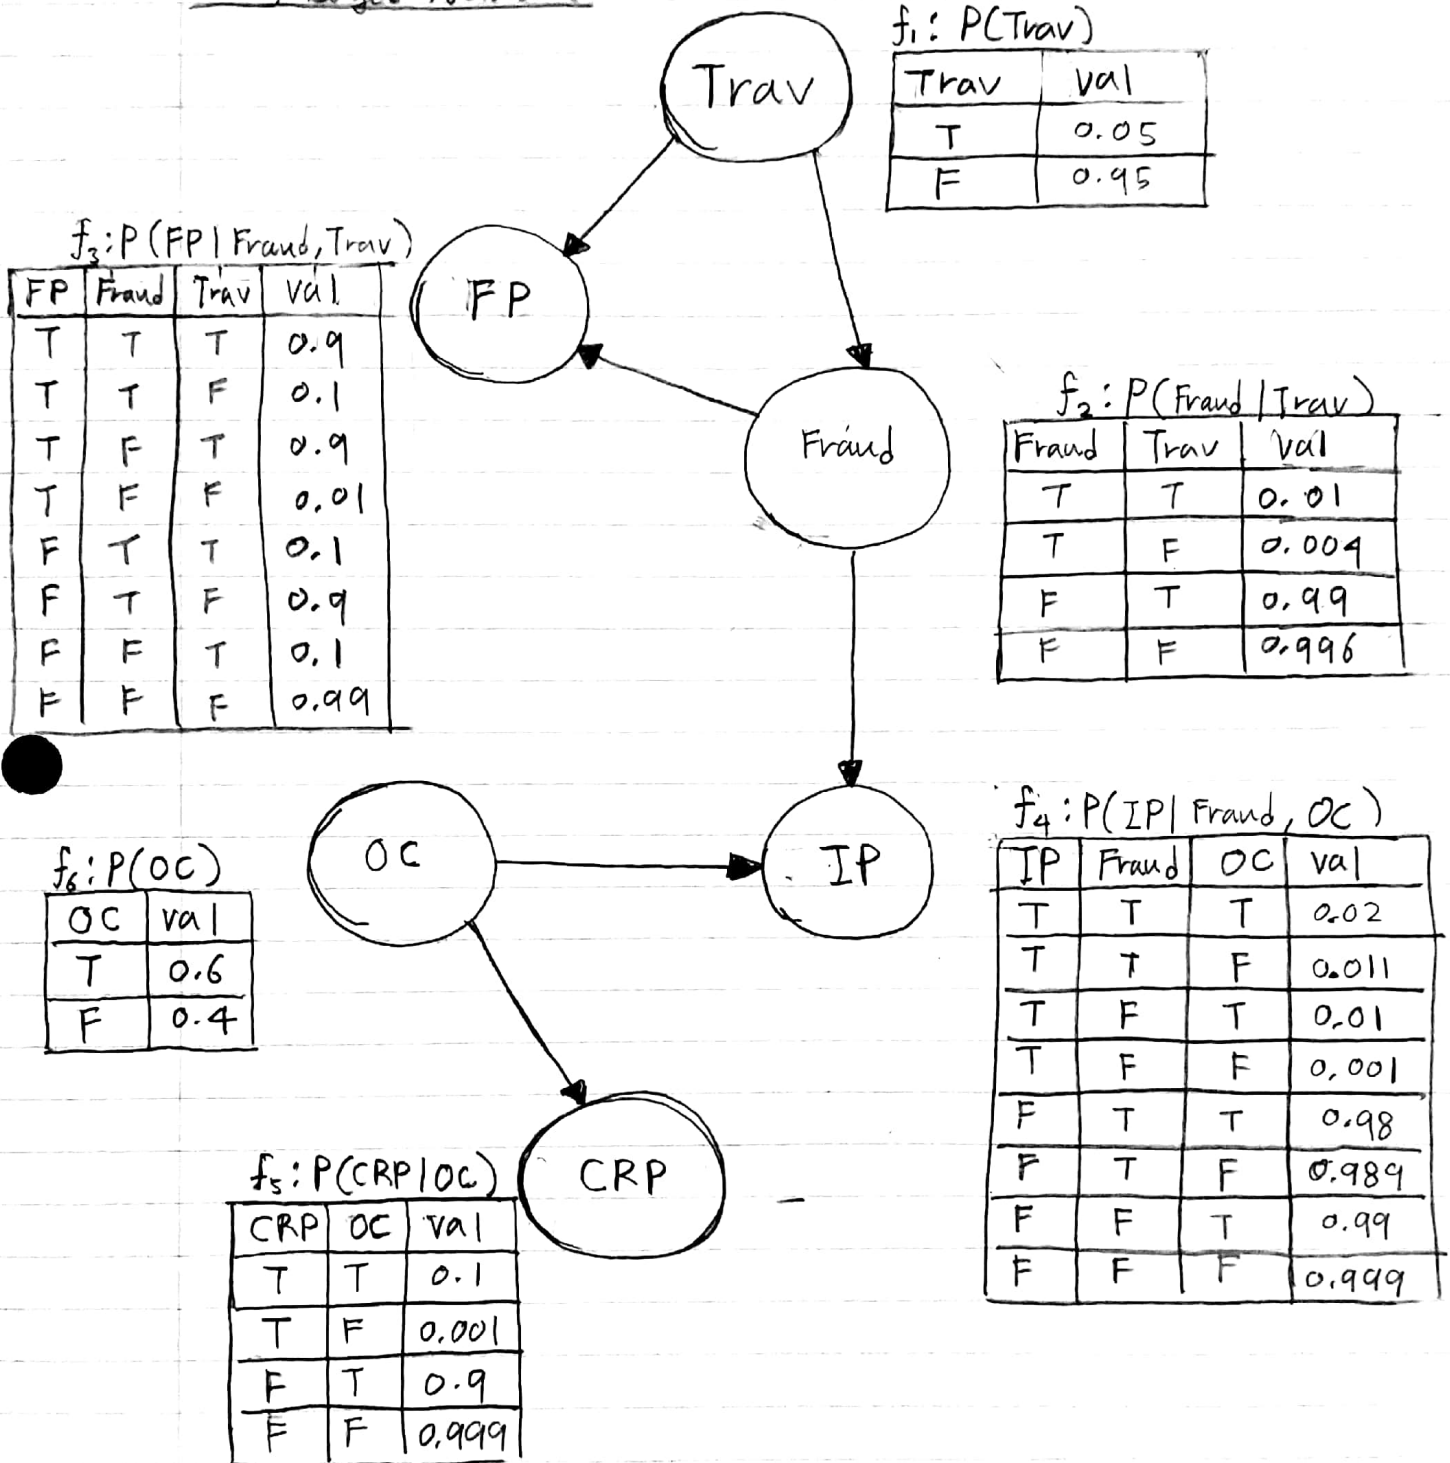 Trav
f₁: P(Trav)
Trav val
T 0.05
F 0.95
f₃: P(FP | Fraud, Trav)
FP Fraud Trav val
T T T 0.9
T T F 0.1
T F T 0.9
T F F 0.01
F T T 0.1
F T F 0.9
F F T 0.1
F F F 0.99
FP
Fraud
f₂: P(Fraud | Trav)
Fraud Trav val
T T 0.01
T F 0.004
F T 0.99
F F 0.996
OC
IP
f₆: P(OC)
OC val
T 0.6
F 0.4
f₄: P(IP | Fraud, OC)
IP Fraud OC val
T T T 0.02
T T F 0.011
T F T 0.01
T F F 0.001
F T T 0.98
F T F 0.989
F F T 0.99
F F F 0.999
CRP
f₅: P(CRP | OC)
CRP OC val
T T 0.1
T F 0.001
F T 0.9
F F 0.999